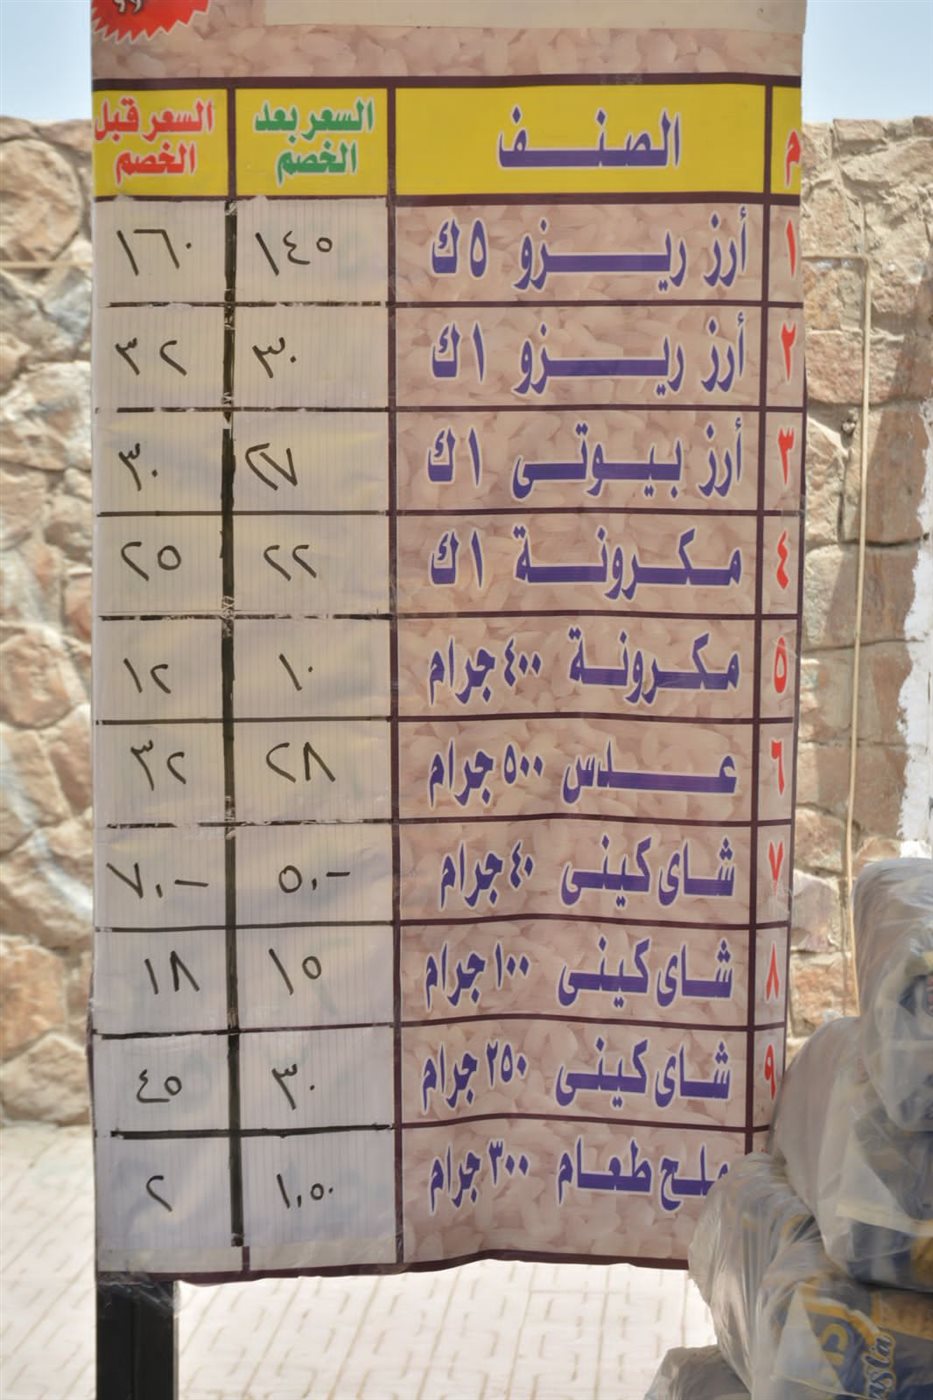 م الصنف السعر بعد الخصم السعر قبل الخصم
١ أرز ريزو ٥ ك ١٤٥ ١٦٠
٢ أرز ريزو ١ ك ٣٠ ٣٢
٣ أرز بيوتى ١ ك ٢٧ ٣٠
٤ مكرونة ١ ك ٢٢ ٢٥
٥ مكرونة ٤٠٠ جرام ١٠ ١٢
٦ عدس ٥٠٠ جرام ٢٨ ٣٢
٧ شاى كينى ٤٠ جرام ٥.- ٧.-
٨ شاى كينى ١٠٠ جرام ١٥ ١٨
٩ شاى كينى ٢٥٠ جرام ٣٠ ٤٥
ملح طعام ٣٠٠ جرام ١,٥٠ ٢